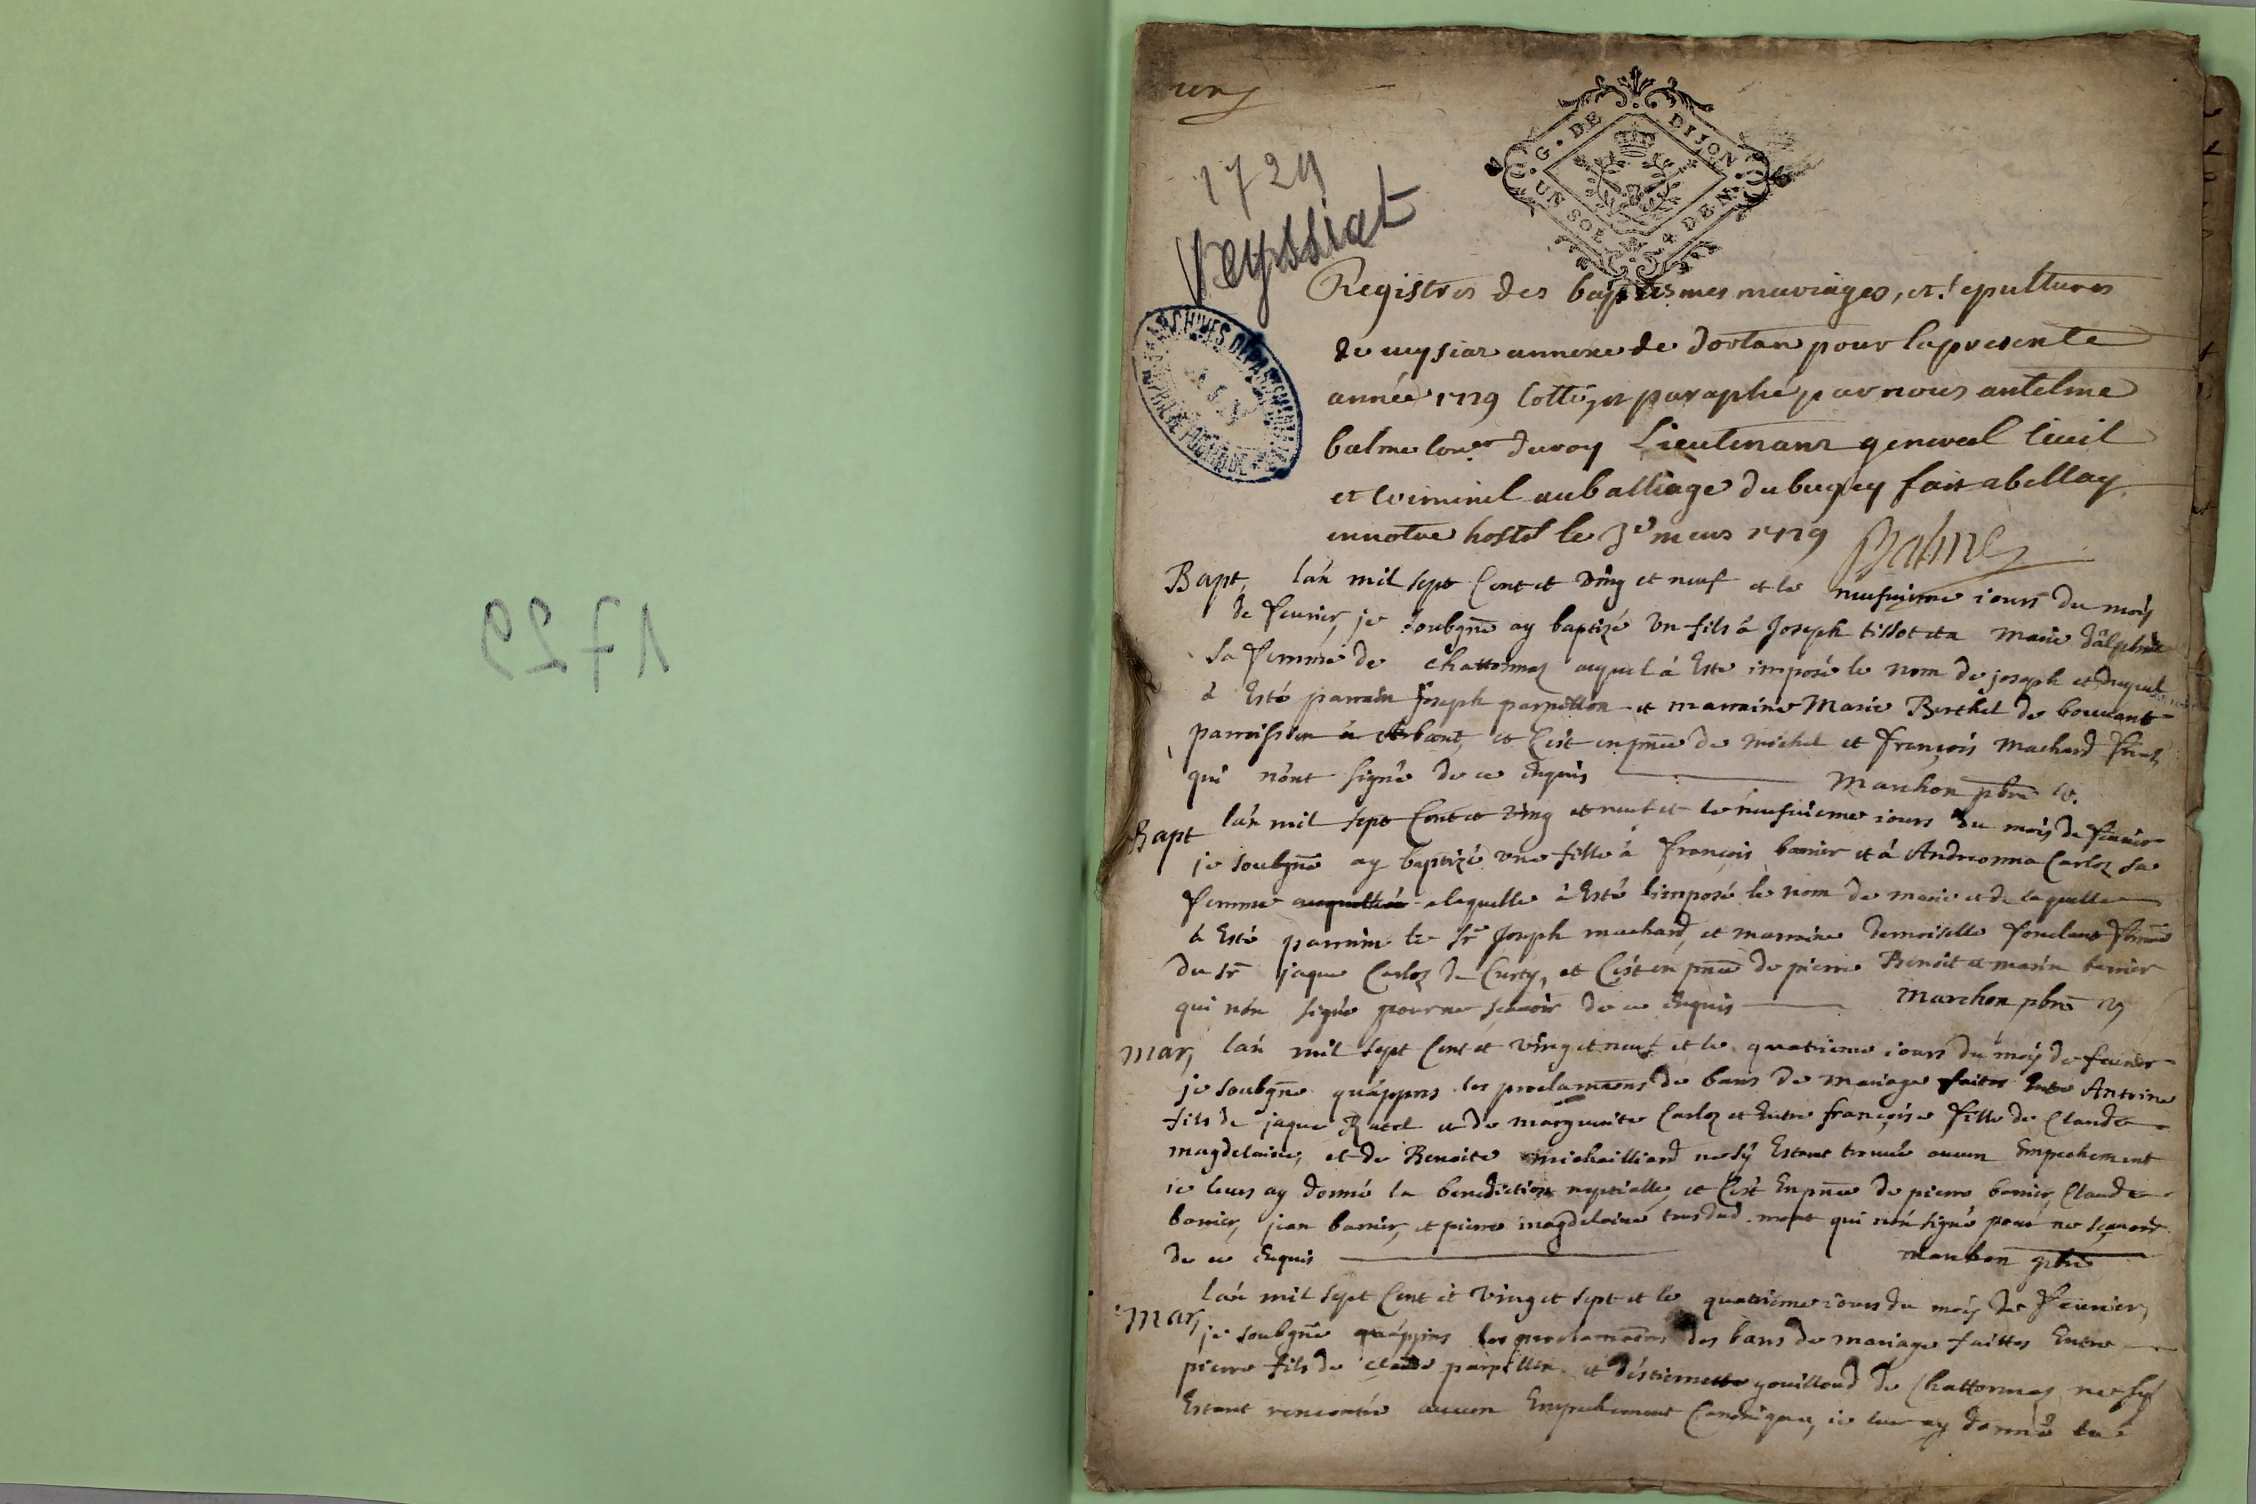 1729
un
G. DE DIJON
UN SOL DEN
1729
Veyssiat
ARCHIVES DEPARTEMENTALES
Registres des baptesmes mariages, et sepultures
de veysiat annexe de dortan pour la presente
année 1729 Cotté et paraphé par nous antelme
balme Coner du roy Lieutenant general Civil
et Criminel au balliage du bugey fait a bellay
en notre hostel le 3e mars 1729 Balme
Bapt, lan mil sept Cent et ving et neuf et le neufvieme iours du mois
de fevrier, je soubgne ay baptizé vn fils á Joseph tissot et a Marie
sa femme de Chattonnaz auquel á Esté imposé le nom de joseph et duquel
á Esté parrain Joseph parpillon et marraine Marie Berthet de bouvant
parroissien á Arbant, et C'est en pnce de michel et françois machard
qui n'ont signé de ce Enquis Marchon pbre v.
Bapt lan mil sept Cent et ving et neuf et le neufvieme iours du mois de fevrier
je soubgne ay baptizé vne fille á françois barrier et á Andreonna Carloz sa
femme a laquelle á Esté imposé le nom de marie et de laquelle
á Esté parrain le Sr Joseph machard, et marraine demoiselle femme
du Sr jaque Carloz de Curty, et C'est en pnce de pierre Benoit et marin barrier
qui n'ón signé pour ne scavoir de ce Enquis Marchon pbre v
Mar, lan mil sept Cent et ving et neuf et le quatrieme iours du mois de fevrier
je soubgne qu'appres les proclamaons de bans de mariage faites Entre Antoine
fils de jaque Ratel et de marguerite Carloz et Entre françoise fille de Claude
magdelaine, et de Benoite michailliard ne s'y Estant trouvé aucun Empechement
ie leurs ay donné la benediction nuptialle, et C'est En pnce de pierre barrier, Claude
barrier, jean barrier, et pierre magdelaine tous dud. qui n'ón signé pour ne sçavoir
de ce Enquis Marchon pbre
Mar, lan mil sept Cent et ving et sept et le quatrieme iours du mois de fevrier,
je soubgne qu'appres les proclamaons des bans de mariage faittes Entre
pierre fils de Claude parpillon et d'Estiennette gouilloud de Chattonnaz ne s'y
Estant rencontré aucun Empechement Canonique, ie leur ay donné la